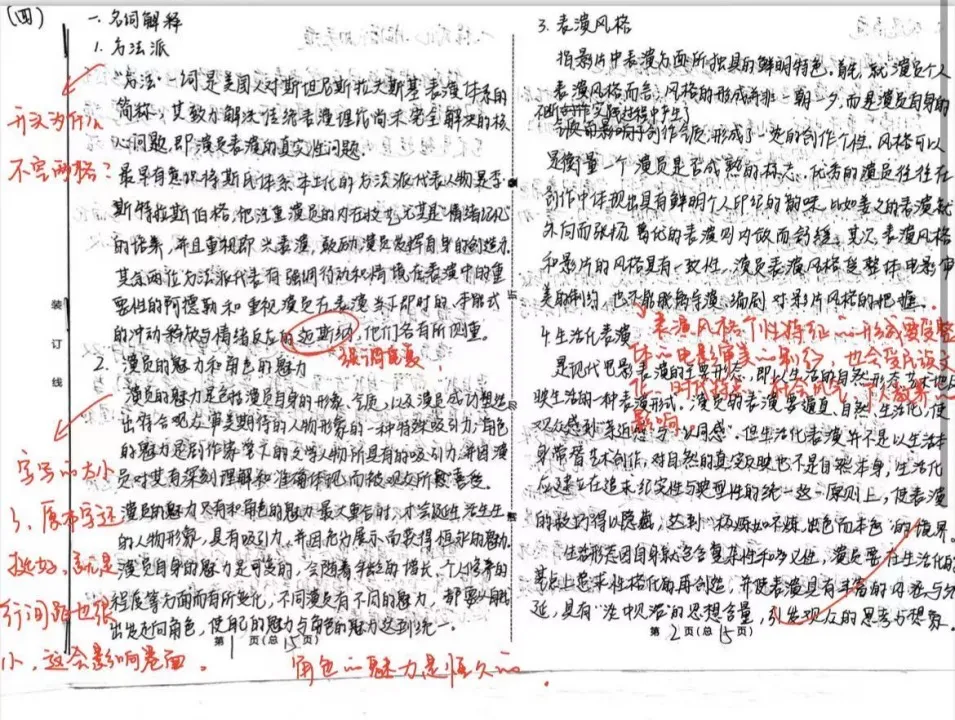 (四)
一、名词解释
1. 方法派
"方法"一词是美国人对斯坦尼斯拉夫斯基表演体系的
简称，其致力解决传统表演理论尚未完全解决的核
心问题，即演员表演的真实性问题。
最早有意识将斯氏体系本土化的方法派代表人物是李·
斯特拉斯伯格，他注重演员的内在技巧尤其是"情绪记忆"
的培养，并且重视即兴表演，鼓励演员发挥自身的创造力。
其余两位方法派代表有强调行动和情境在表演中的重
要性的阿德勒和重视演员在表演当下即时的、本能式
的冲动释放与情绪反应的迈斯纳，他们各有所侧重。
2. 演员的魅力和角色的魅力
演员的魅力是包括演员自身的形象、气质，以及演员成功塑造
出符合观众审美期待的人物形象的一种特殊吸引力。角色
的魅力是剧作家笔下的文学人物所具有的吸引力，并因演
员对其有深刻理解和准确体现而被观众所喜爱。
演员的魅力只有和角色的魅力最大重合时，才会诞生活生生
的人物形象，具有吸引力，并因充分展示而获得恒久的魅力。
演员自身的魅力是可变的，会随着年龄的增长、个人修养的
程度等方面而有所变化，不同演员有不同的魅力，都要从自我
出发走向角色，使自己的魅力与角色的魅力达到统一。
第 1 页(总 15 页)
装
订
线
开头为什么
不空两格？
强调重复
字写的大小
了，原本字还
挺好，就是
行间距也很
小，这会影响卷面。
角色的魅力是恒久的。
3. 表演风格
指影片中表演方面所独具的鲜明特色。首先，就演员个人
表演风格而言，风格的形成并非一朝一夕，而是演员自身的
在创作实践过程中产生
的影响于创作气质，形成了一定的创作个性。风格可以
是衡量一个演员是否成熟的标志。优秀的演员往往在
创作中体现出具有鲜明个人印记的韵味。比如姜文的表演就
外向而张扬，葛优的表演则内敛而舒缓。其次，表演风格
和影片的风格具有一致性，演员表演风格受整体电影审
美的制约，也不能脱离导演、编剧对影片风格的把握。
表演风格个性特征的形成要受整
体的电影审美的影响，也会受民族文
化、时代特点、社会风气、个人教养的
影响。
4. 生活化表演
是现代电影表演的主要形态，即以生活的自然形态
映生活的一种表演形式。演员的表演要逼真、自然、生活化，使
观众感到"亲近感"与"认同感"。但生活化表演并不是以生活本
身代替艺术创作，对自然的真实反映也不是自然本身，生活化
应建立在追求纪实性与典型性的统一这一原则上，使表演
的技巧得以隐藏，达到"极炼如不炼，出色而本色"的境界。
生活形态因自身就富含复杂性和多义性，演员要在生活化的
基点上追求性格化的再创造，并使表演具有丰富的内涵与外
延，具有"淡中见浓"的思想含量，引发观众的思考与想象。
第 2 页(总 15 页)